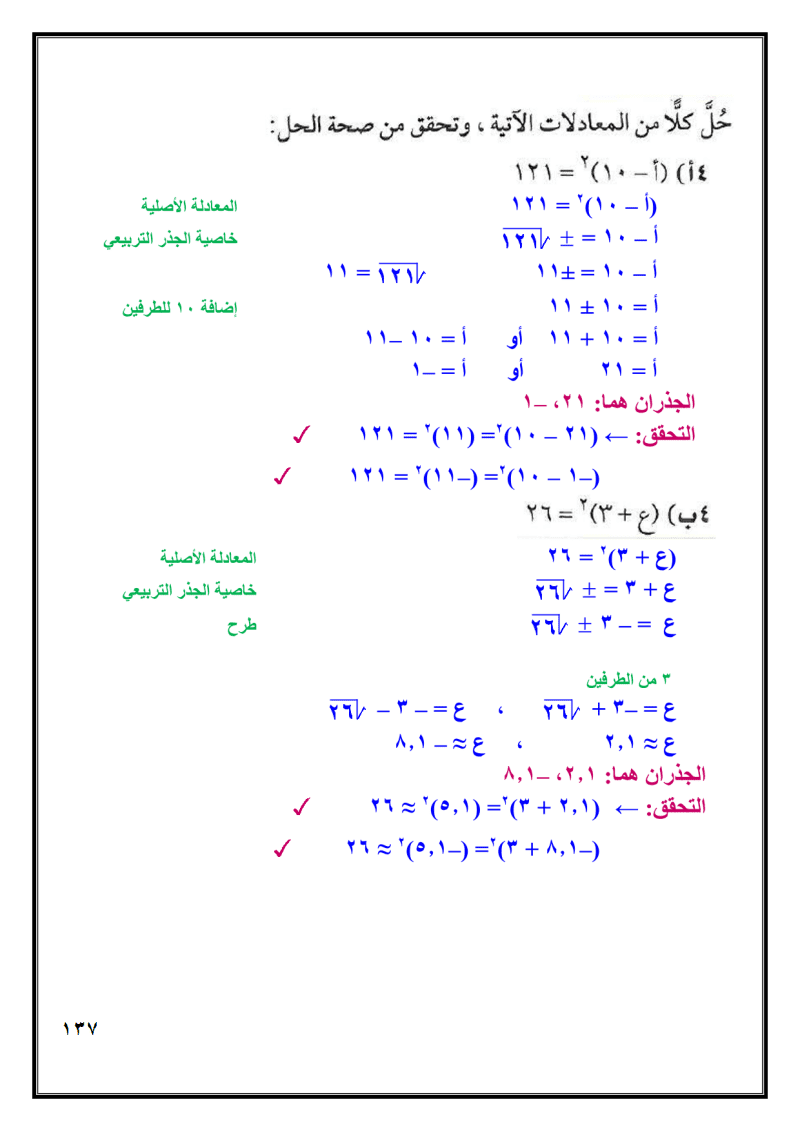 حُلَّ كلًّا من المعادلات الآتية ، وتحقق من صحة الحل:
٤أ) (أ – ١٠)٢ = ١٢١
(أ – ١٠)٢ = ١٢١ المعادلة الأصلية
أ – ١٠ = ± √١٢١ خاصية الجذر التربيعي
أ – ١٠ = ±١١ √١٢١ = ١١
أ = ١٠ ± ١١ إضافة ١٠ للطرفين
أ = ١٠ + ١١ أو أ = ١٠ –١١
أ = ٢١ أو أ = –١
الجذران هما: ٢١، –١
التحقق: ← (٢١ – ١٠)٢= (١١)٢ = ١٢١ ✓
(–١ – ١٠)٢= (–١١)٢ = ١٢١ ✓
٤ب) (ع + ٣)٢ = ٢٦
(ع + ٣)٢ = ٢٦ المعادلة الأصلية
ع + ٣ = ± √٢٦ خاصية الجذر التربيعي
ع = – ٣ ± √٢٦ طرح
٣ من الطرفين
ع = –٣ + √٢٦ ، ع = – ٣ – √٢٦
ع ≈ ٢,١ ، ع ≈ – ٨,١
الجذران هما: ٢,١، –٨,١
التحقق: ← (٢,١ + ٣)٢= (٥,١)٢ ≈ ٢٦ ✓
(–٨,١ + ٣)٢= (–٥,١)٢ ≈ ٢٦ ✓
١٣٧